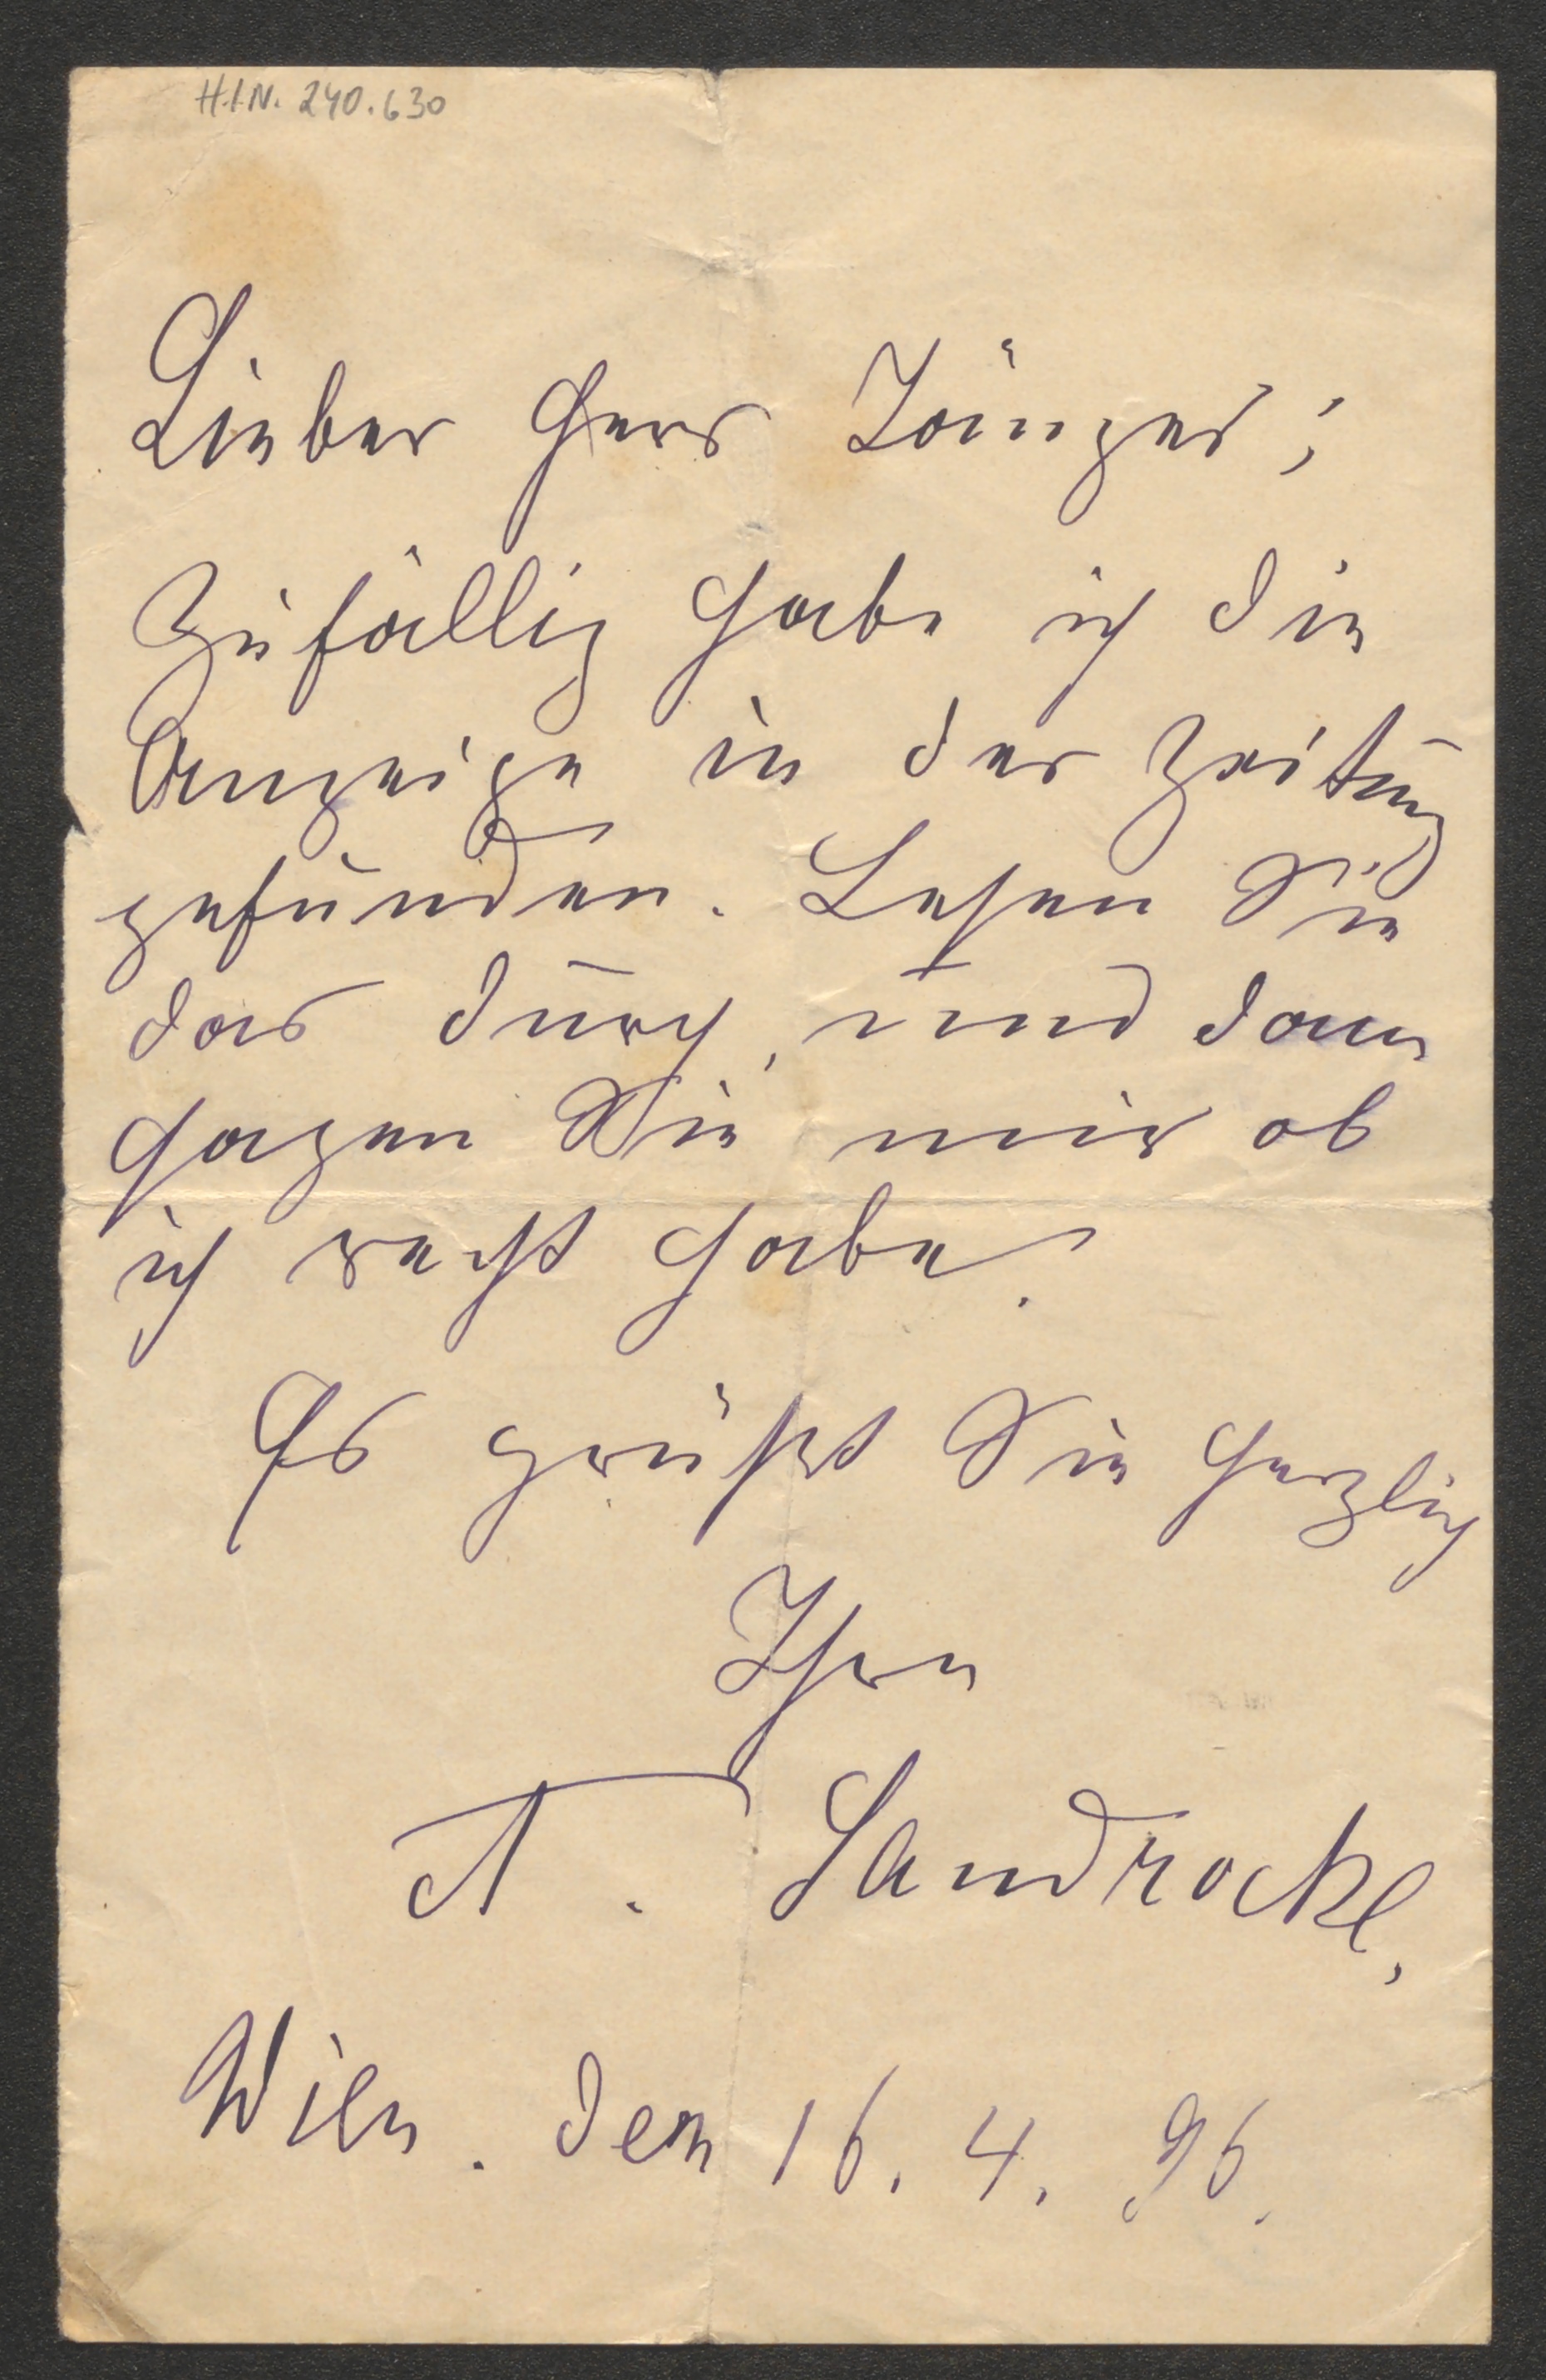 H.I.N. 240.630
Lieber Herr Jänger;
Zufällig habe ich die
Anzeige in der Zeitung
gefunden. Lesen Sie
das durch, und dann
sagen Sie mir ob
ich recht habe.
Es grüßt Sie herzlich
Ihre
A. Sandrock.
Wien. den 16. 4. 96.